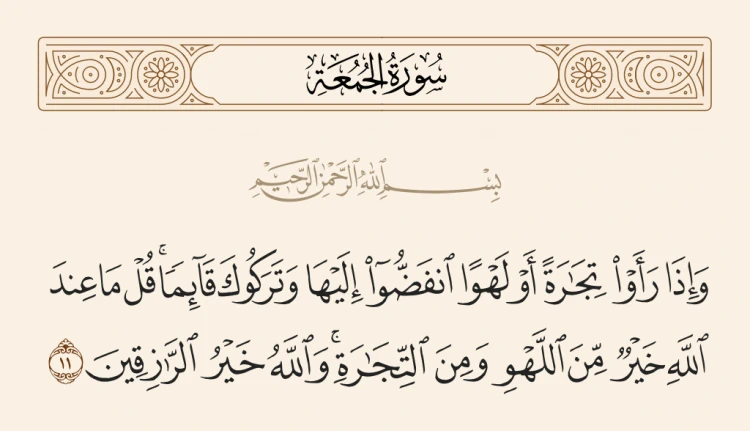 سُورَةُ الجُمُعَةِ
بِسْمِ ٱللَّهِ ٱلرَّحْمَٰنِ ٱلرَّحِيمِ
وَإِذَا رَأَوْا۟ تِجَٰرَةً أَوْ لَهْوًا ٱنفَضُّوٓا۟ إِلَيْهَا وَتَرَكُوكَ قَآئِمًا ۚ قُلْ مَا عِندَ
ٱللَّهِ خَيْرٌ مِّنَ ٱللَّهْوِ وَمِنَ ٱلتِّجَٰرَةِ ۚ وَٱللَّهُ خَيْرُ ٱلرَّٰزِقِينَ ١١